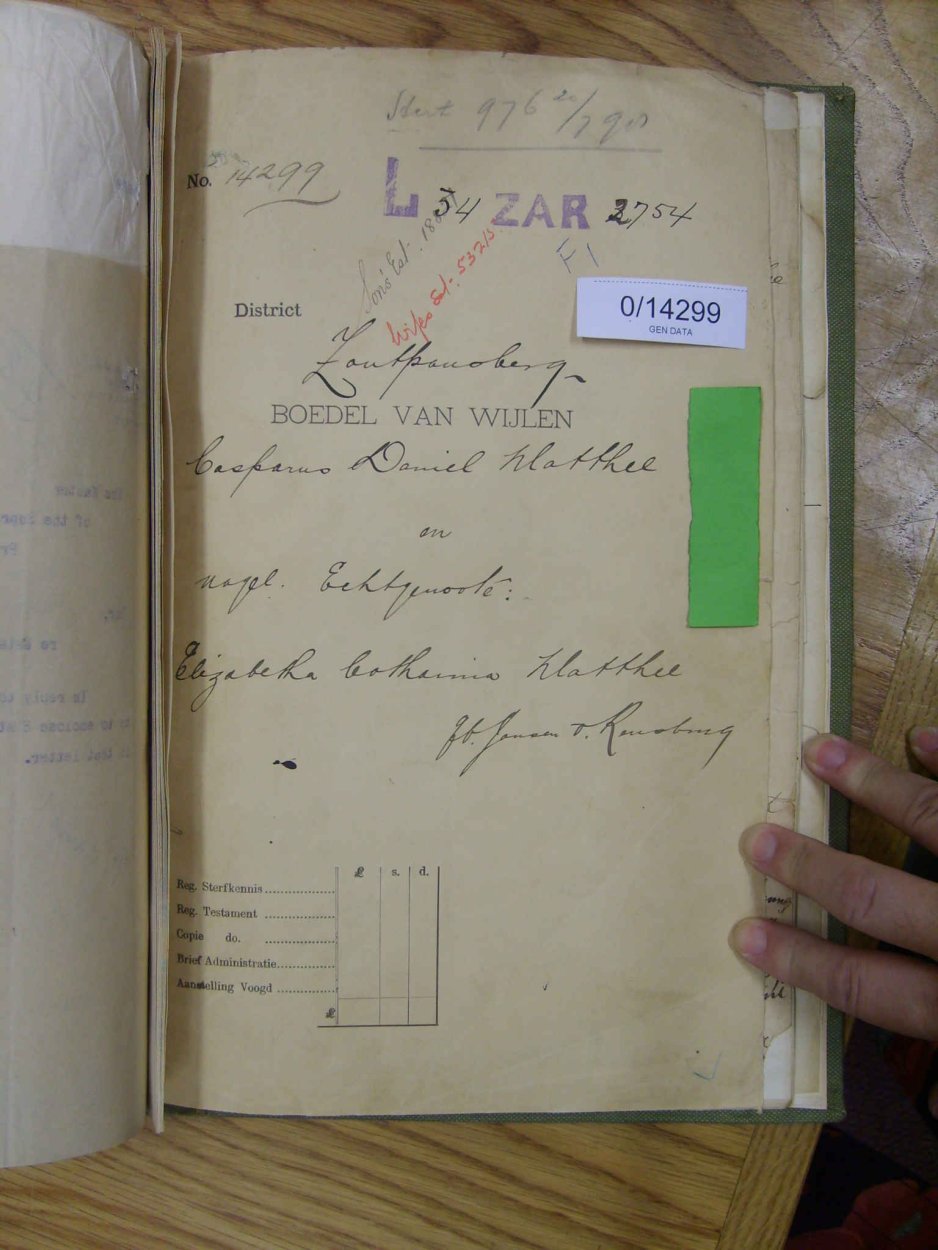 976 20/7
No. 14299
L 54 ZAR 2754
Son's Est.
Wifes Est. 53215
F1
0/14299
GEN DATA
District
Zoutpansberg
BOEDEL VAN WIJLEN
Casparus Daniel Matthee
en
nagel. Echtgenoote:
Elizabetha Catharina Matthee
gb. Jansen v. Rensburg
£ s. d.
Reg. Sterfkennis
Reg. Testament
Copie do.
Brief Administratie
Aanstelling Voogd
£